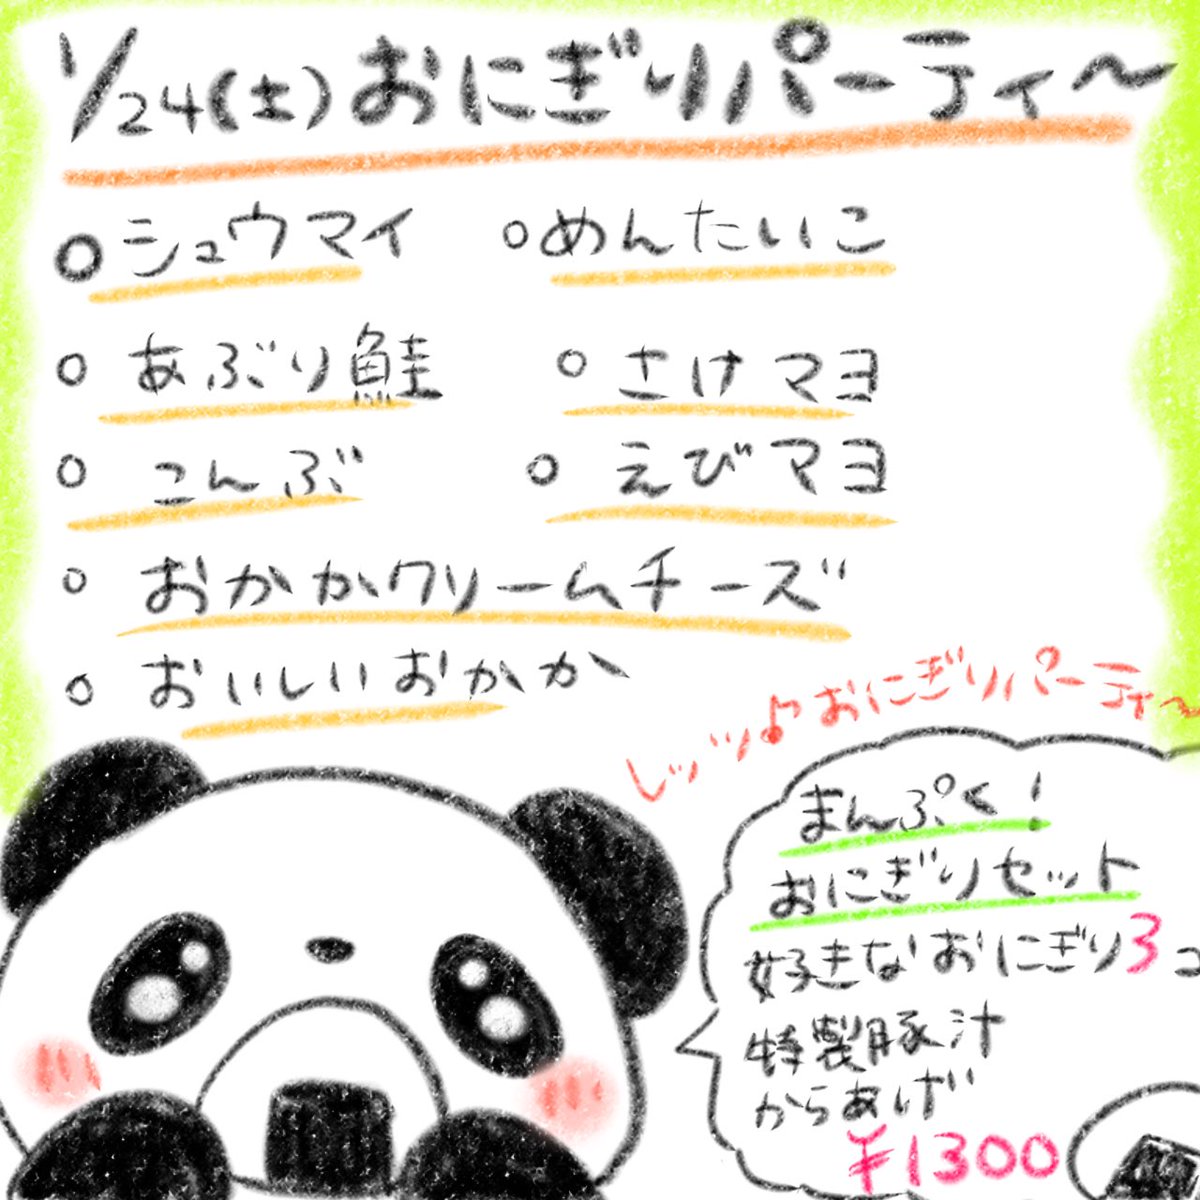 1/24(土)おにぎりパーティ〜
○シュウマイ ○めんたいこ
○あぶり鮭 ○さけマヨ
○こんぶ ○えびマヨ
○おかかクリームチーズ
○おいしいおかか
レッツ♪おにぎりパーティ〜
まんぷく!
おにぎりセット
好きなおにぎり3コ
特製豚汁
からあげ
¥1300